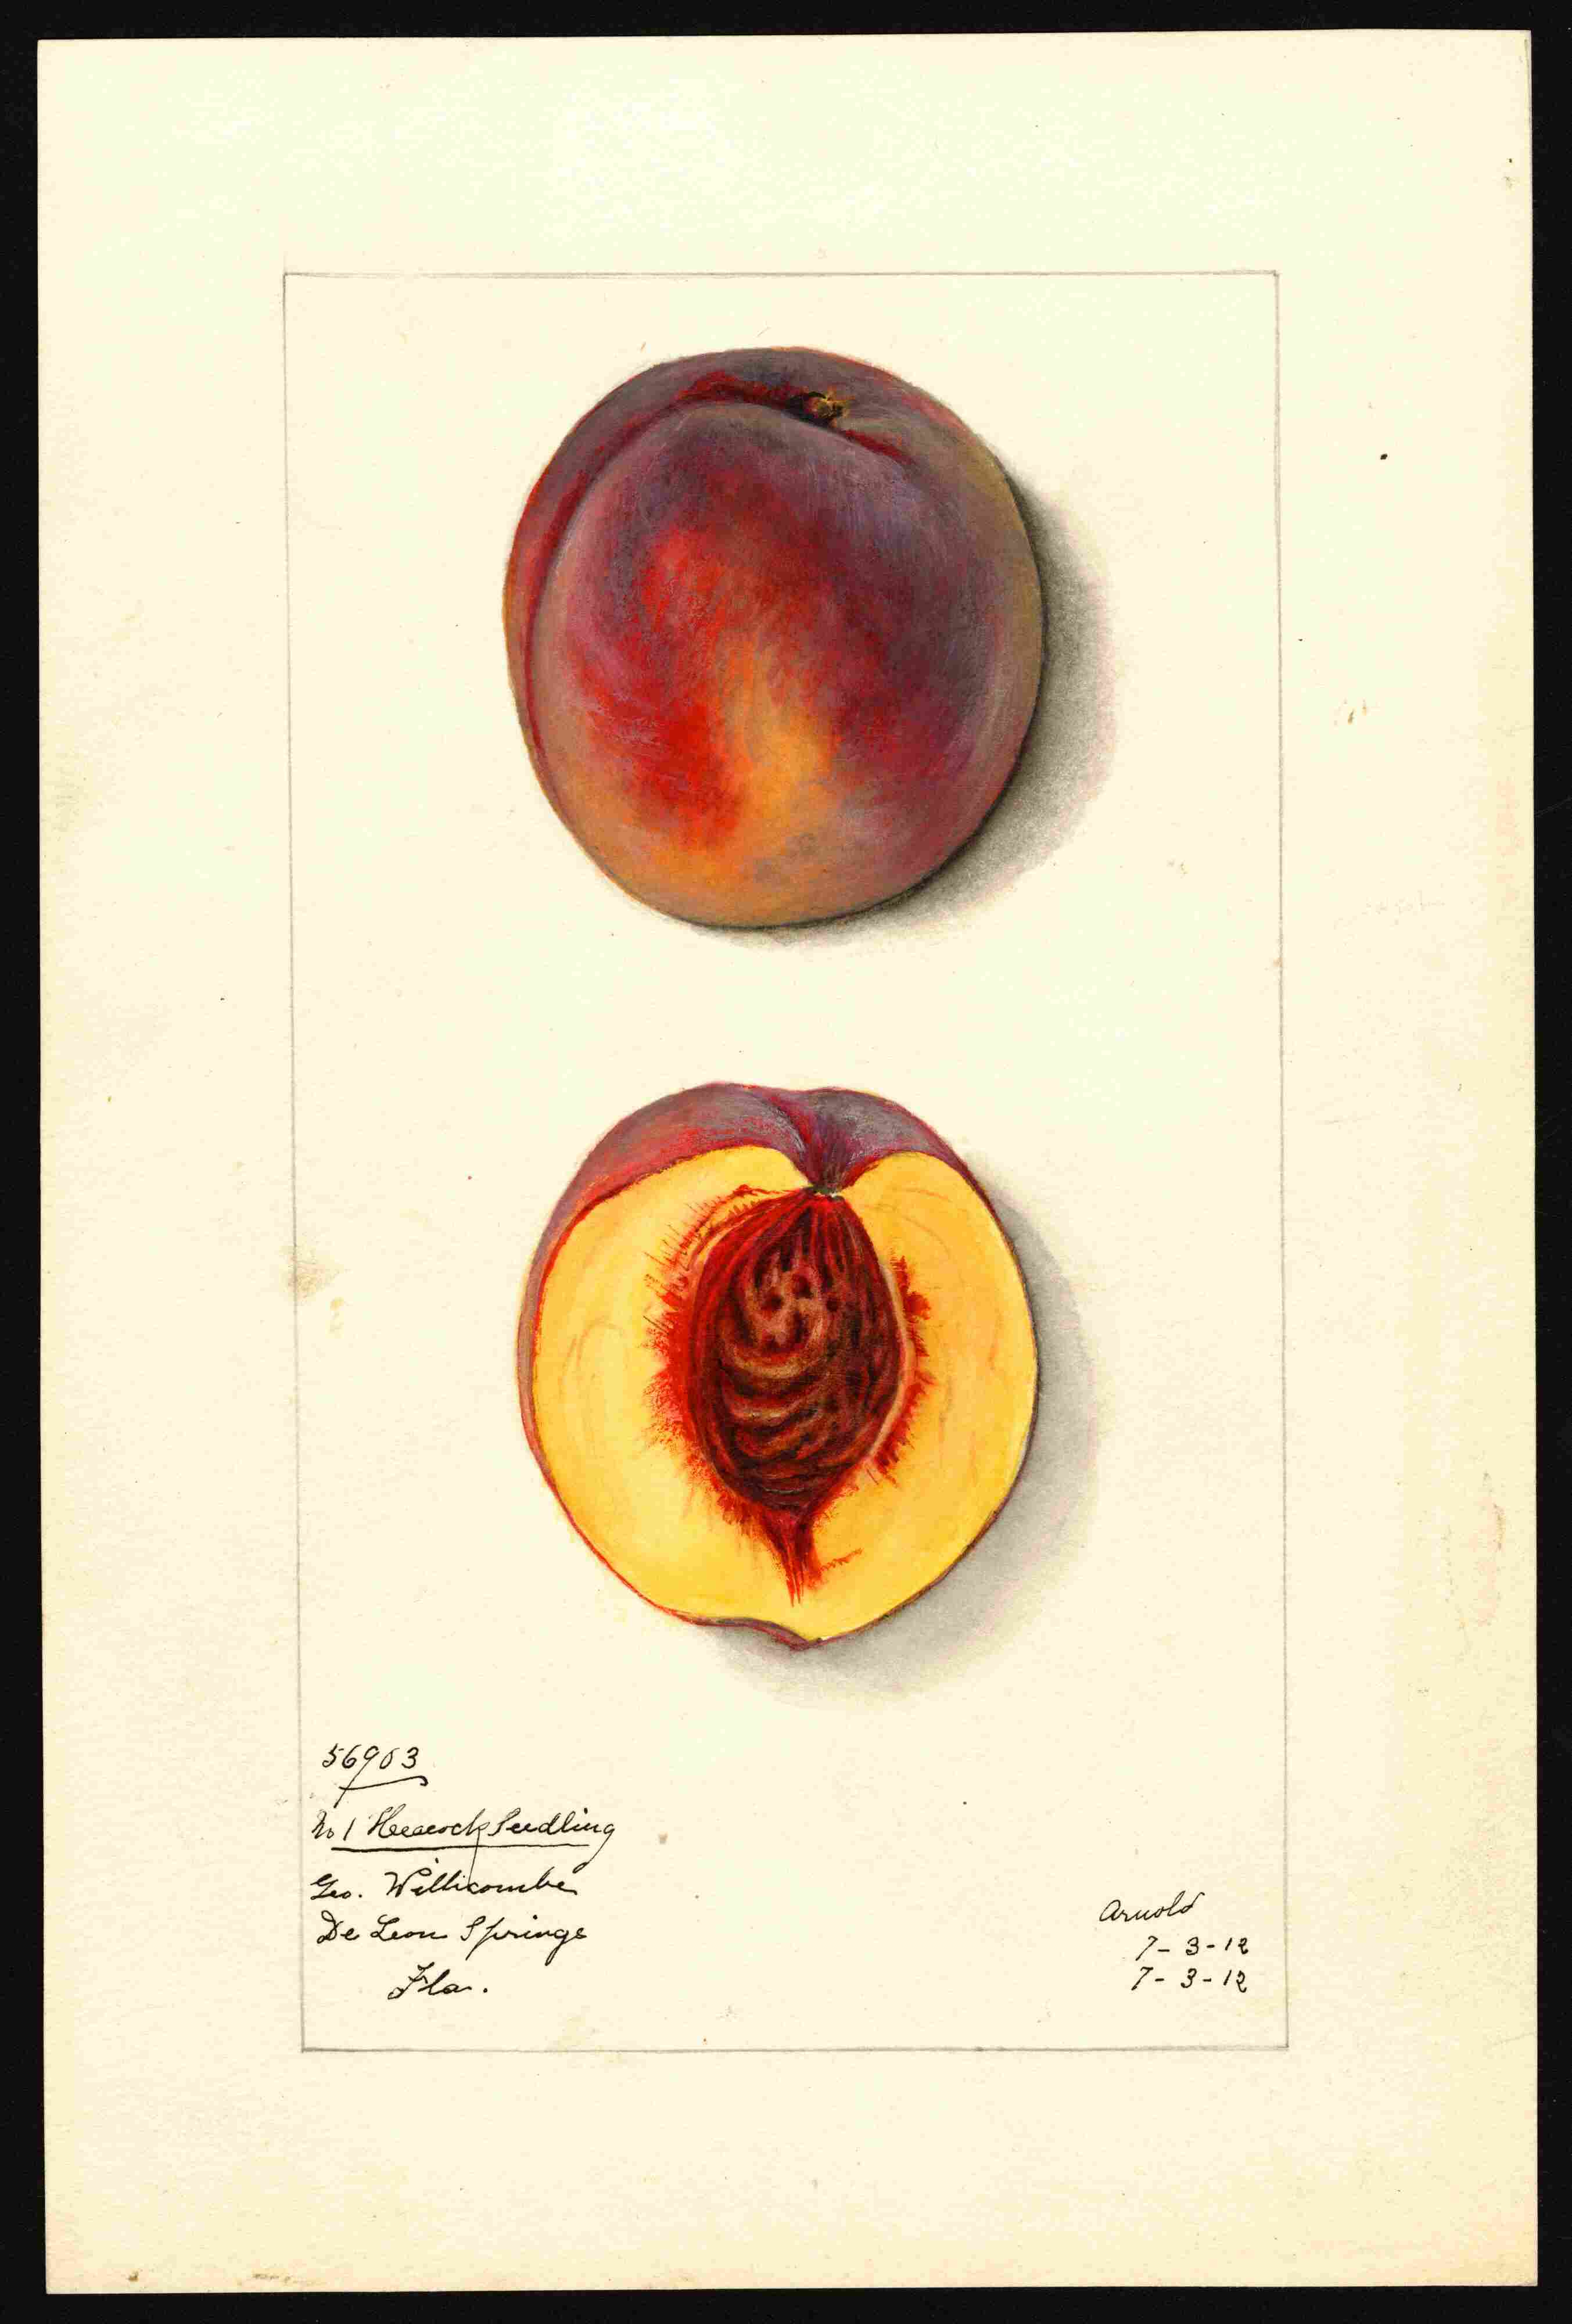 56903
No 1 Heacock Seedling
Geo. Wellicombe
De Leon Springs
Fla.
Arnold
7-3-12
7-3-12